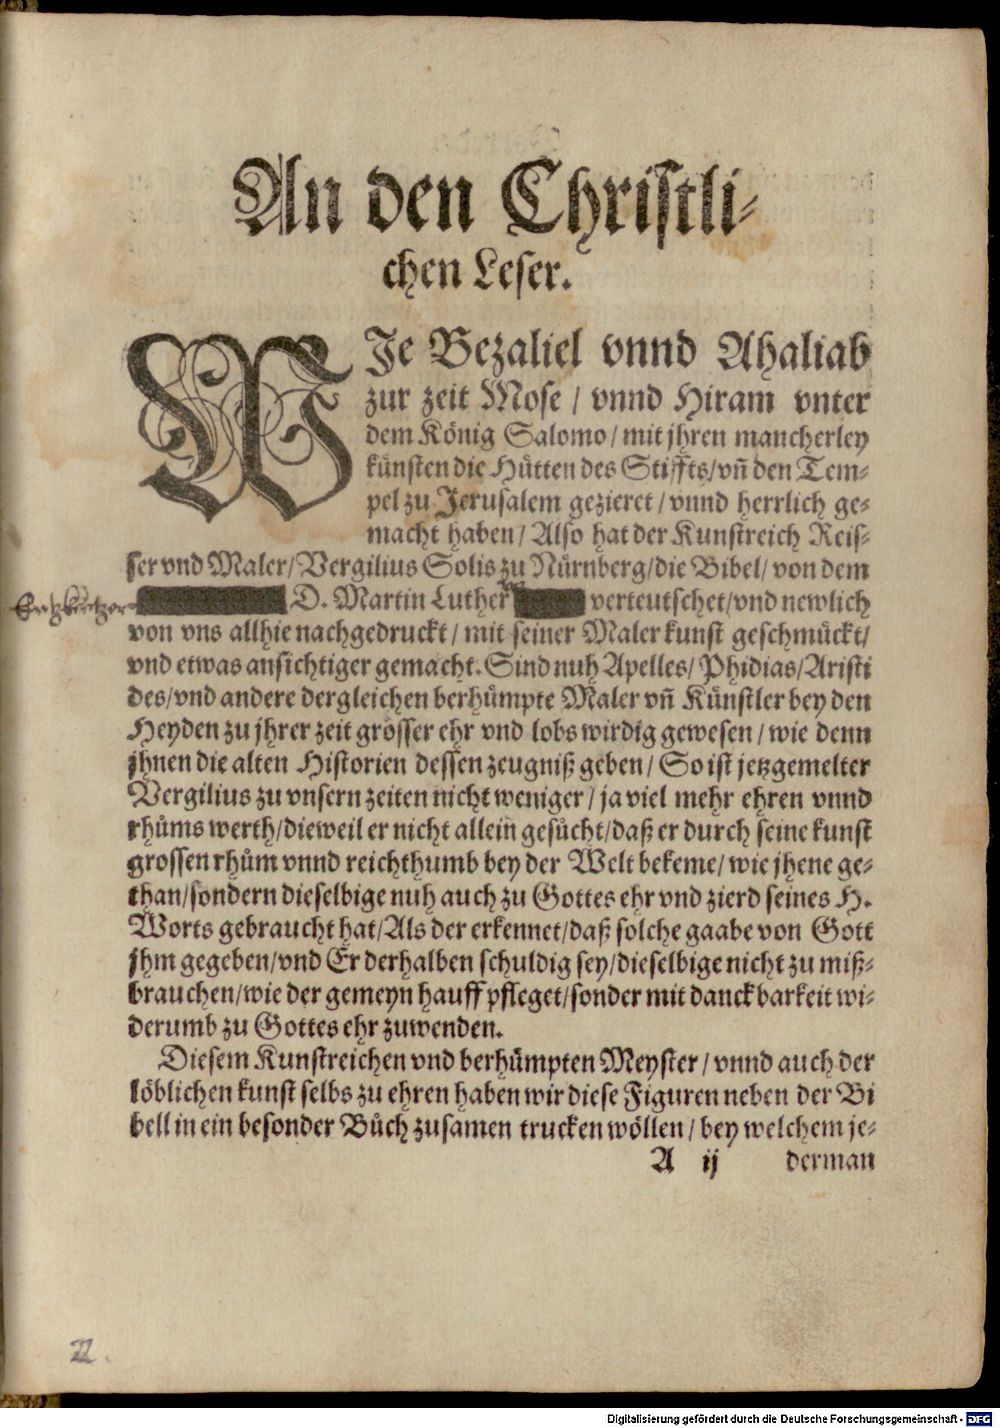 An den Christli-
chen Leser.
WJe Bezaliel vnnd Ahaliab
zur zeit Mose / vnnd Hiram vnter
dem König Salomo / mit jhren mancherley
künsten die Hütten des Stiffts / vñ den Tem-
pel zu Jerusalem gezieret / vnnd herrlich ge-
macht haben / Also hat der Kunstreich Reis-
ser vnd Maler / Vergilius Solis zu Nürnberg / die Bibel / von dem
Ertzketzer D. Martin Luther verteutschet / vnd newlich
von vns allhie nachgedruckt / mit seiner Maler kunst geschmückt /
vnd etwas ansichtiger gemacht. Sind nuh Apelles / Phidias / Aristi
des / vnd andere dergleichen berhümpte Maler vñ Künstler bey den
Heyden zu jhrer zeit grösser ehr vnd lobs wirdig gewesen / wie denn
jhnen die alten Historien dessen zeugniß geben / So ist jetzgemelter
Vergilius zu vnsern zeiten nicht weniger / ja viel mehr ehren vnnd
rhůms werth / dieweil er nicht allein gesůcht / daß er durch seine kunst
grossen rhům vnnd reichthumb bey der Welt bekeme / wie jhene ge-
than / sondern dieselbige nuh auch zu Gottes ehr vnd zierd seines H.
Worts gebraucht hat / Als der erkennet / daß solche gaabe von Gott
jhm gegeben / vnd Er derhalben schuldig sey / dieselbige nicht zu miß-
brauchen / wie der gemeyn hauff pfleget / sonder mit danckbarkeit wi-
derumb zu Gottes ehr zuwenden.
Diesem Kunstreichen vnd berhümpten Meyster / vnnd auch der
löblichen kunst selbs zu ehren haben wir diese Figuren neben der Bi
bell in ein besonder Bůch zusamen trucken wöllen / bey welchem je-
A ij derman
Digitalisierung gefördert durch die Deutsche Forschungsgemeinschaft - DFG